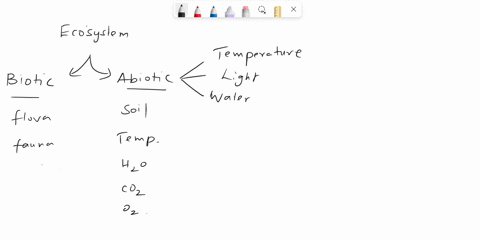 Ecosystem
Biotic
flova
fauna
Abiotic
Soil
Temp.
H2O
CO2
O2
Temperature
Light
Water